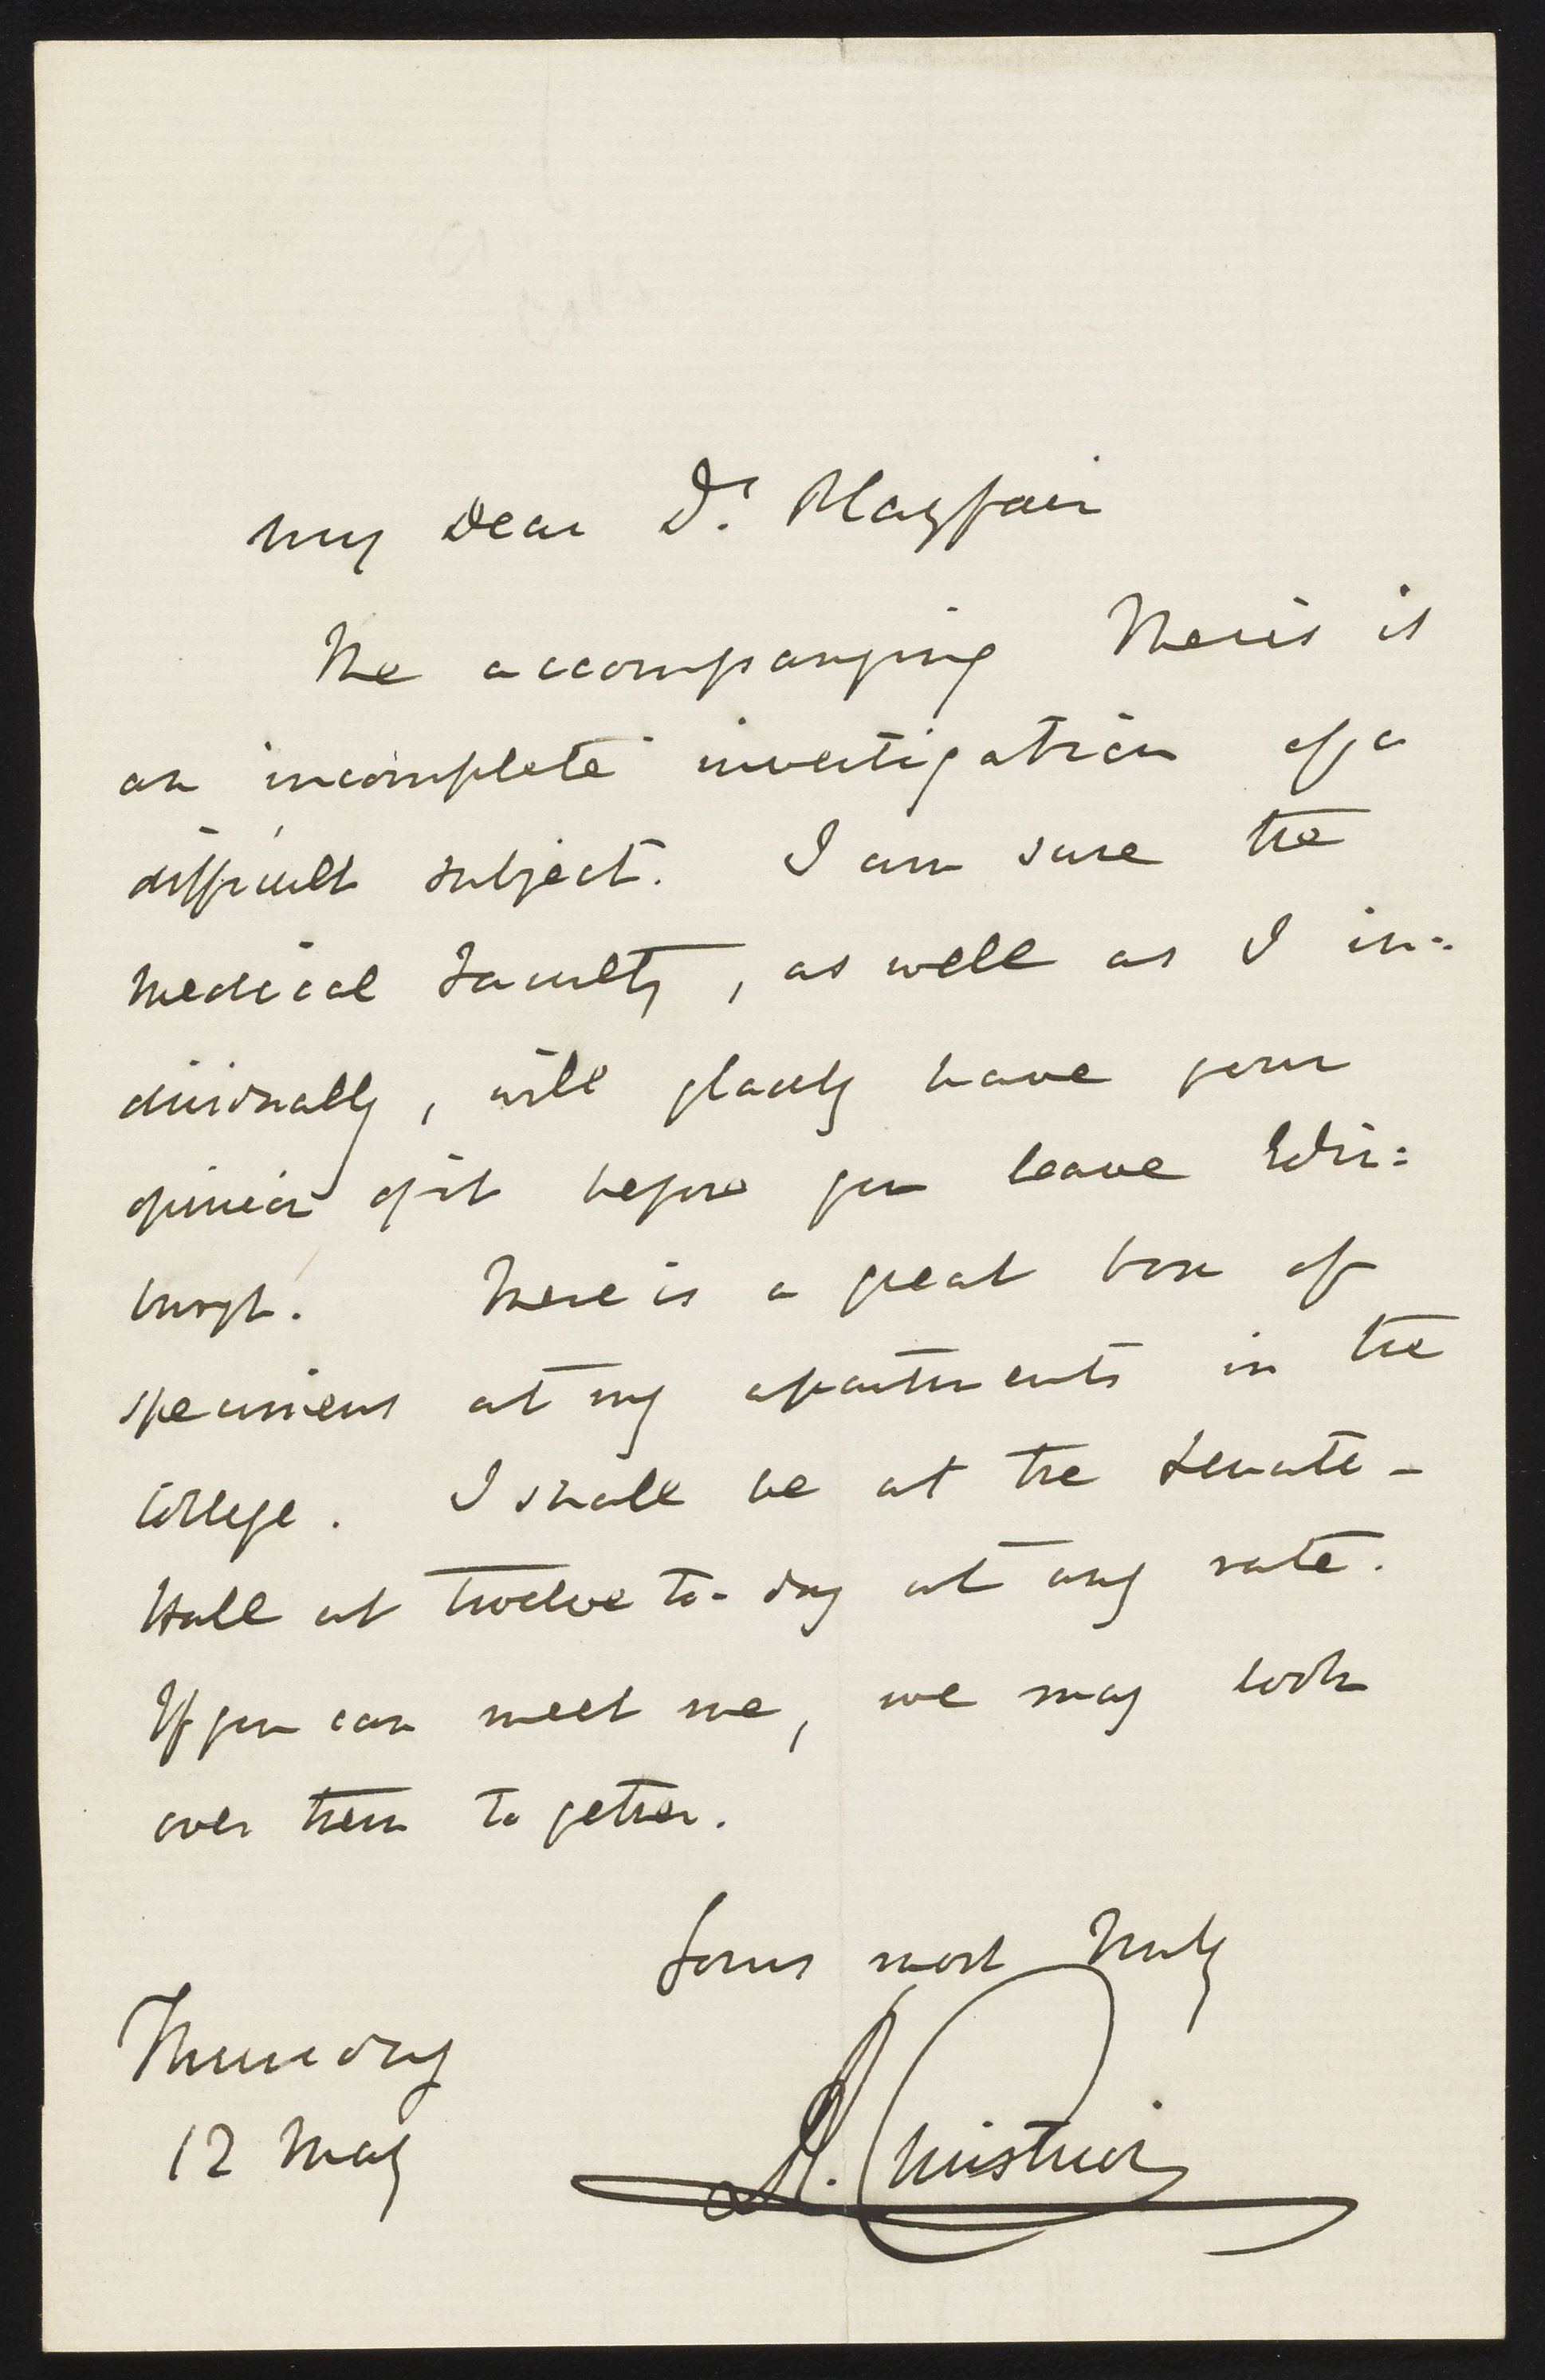 My Dear Dr. Playfair
The accompanying Thesis is
an incomplete investigation of a
difficult subject. I am sure the
Medical Faculty, as well as I in=
dividually, will gladly have your
opinion of it before you leave Edin=
burgh. There is a great box of
specimens at my apartments in the
College. I shall be at the Senate-
Hall at twelve to-day at any rate.
If you can meet me, we may look
over them together.
Yours most truly
R. Christison
Thursday
12 May